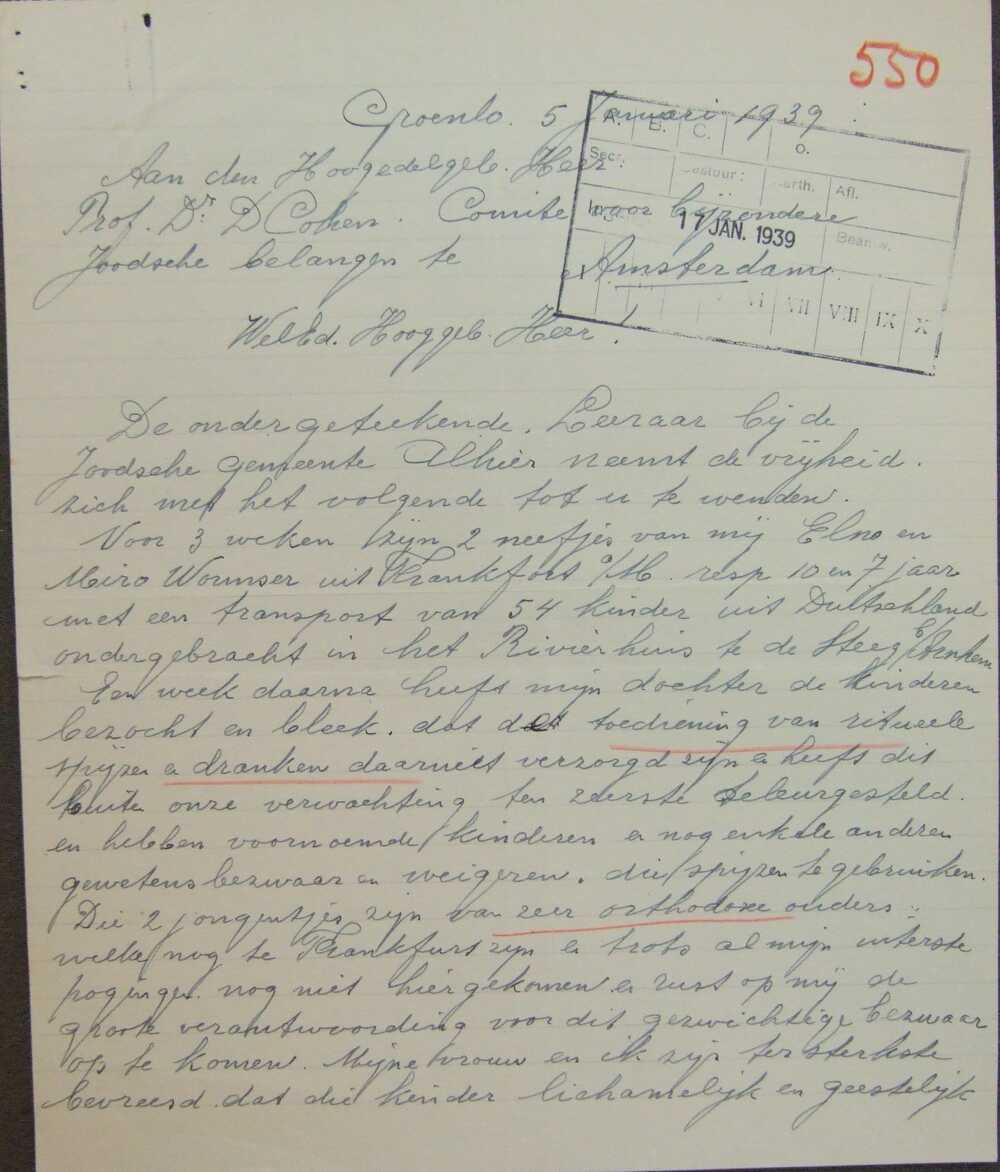 550
Groenlo. 5 Januari 1939
A. B. C. O.
Aan den Hoogedelgeb. Heer
Secr. Bestuur: Afl.
Prof. Dr D Cohen. Comite voor bijzondere
17 JAN. 1939
Joodsche belangen te Amsterdam
VI VII VIII IX X
WelEd. Hooggeb. Heer!
De ondergeteekende. Leeraar bij de
Joodsche gemeente Alhier neemt de vrijheid.
zich met het volgende tot u te wenden.
Voor 3 weken zijn 2 neefjes van mij Elno en
Miro Wormser uit Frankfort a/M. resp 10 en 7 jaar
met een transport van 54 kinder uit Duitschland
ondergebracht in het Rivierhuis te de Steeg b/Arnhem
Een week daarna heeft mijn dochter de kinderen
bezocht en bleek. dat det toediening van ritueele
spijzen en dranken daarniet verzorgd zijn en heeft dit
buiten onze verwachting ten zeerste teleurgesteld.
en hebben voornoemde kinderen en nog enkele anderen
gewetensbezwaar en weigeren. die spijzen te gebruiken.
Die 2 jongentjes zijn van zeer orthodoxe ouders
welke nog te Frankfurt zijn en trots al mijn uiterste
pogingen nog niet hiergekomen en rust op mij de
groote verantwoording voor dit gewichtige bezwaar
op te komen. Mijne vrouw en ik zijn ten sterkste
bevreesd dat die kinder lichamelijk en geestelijk